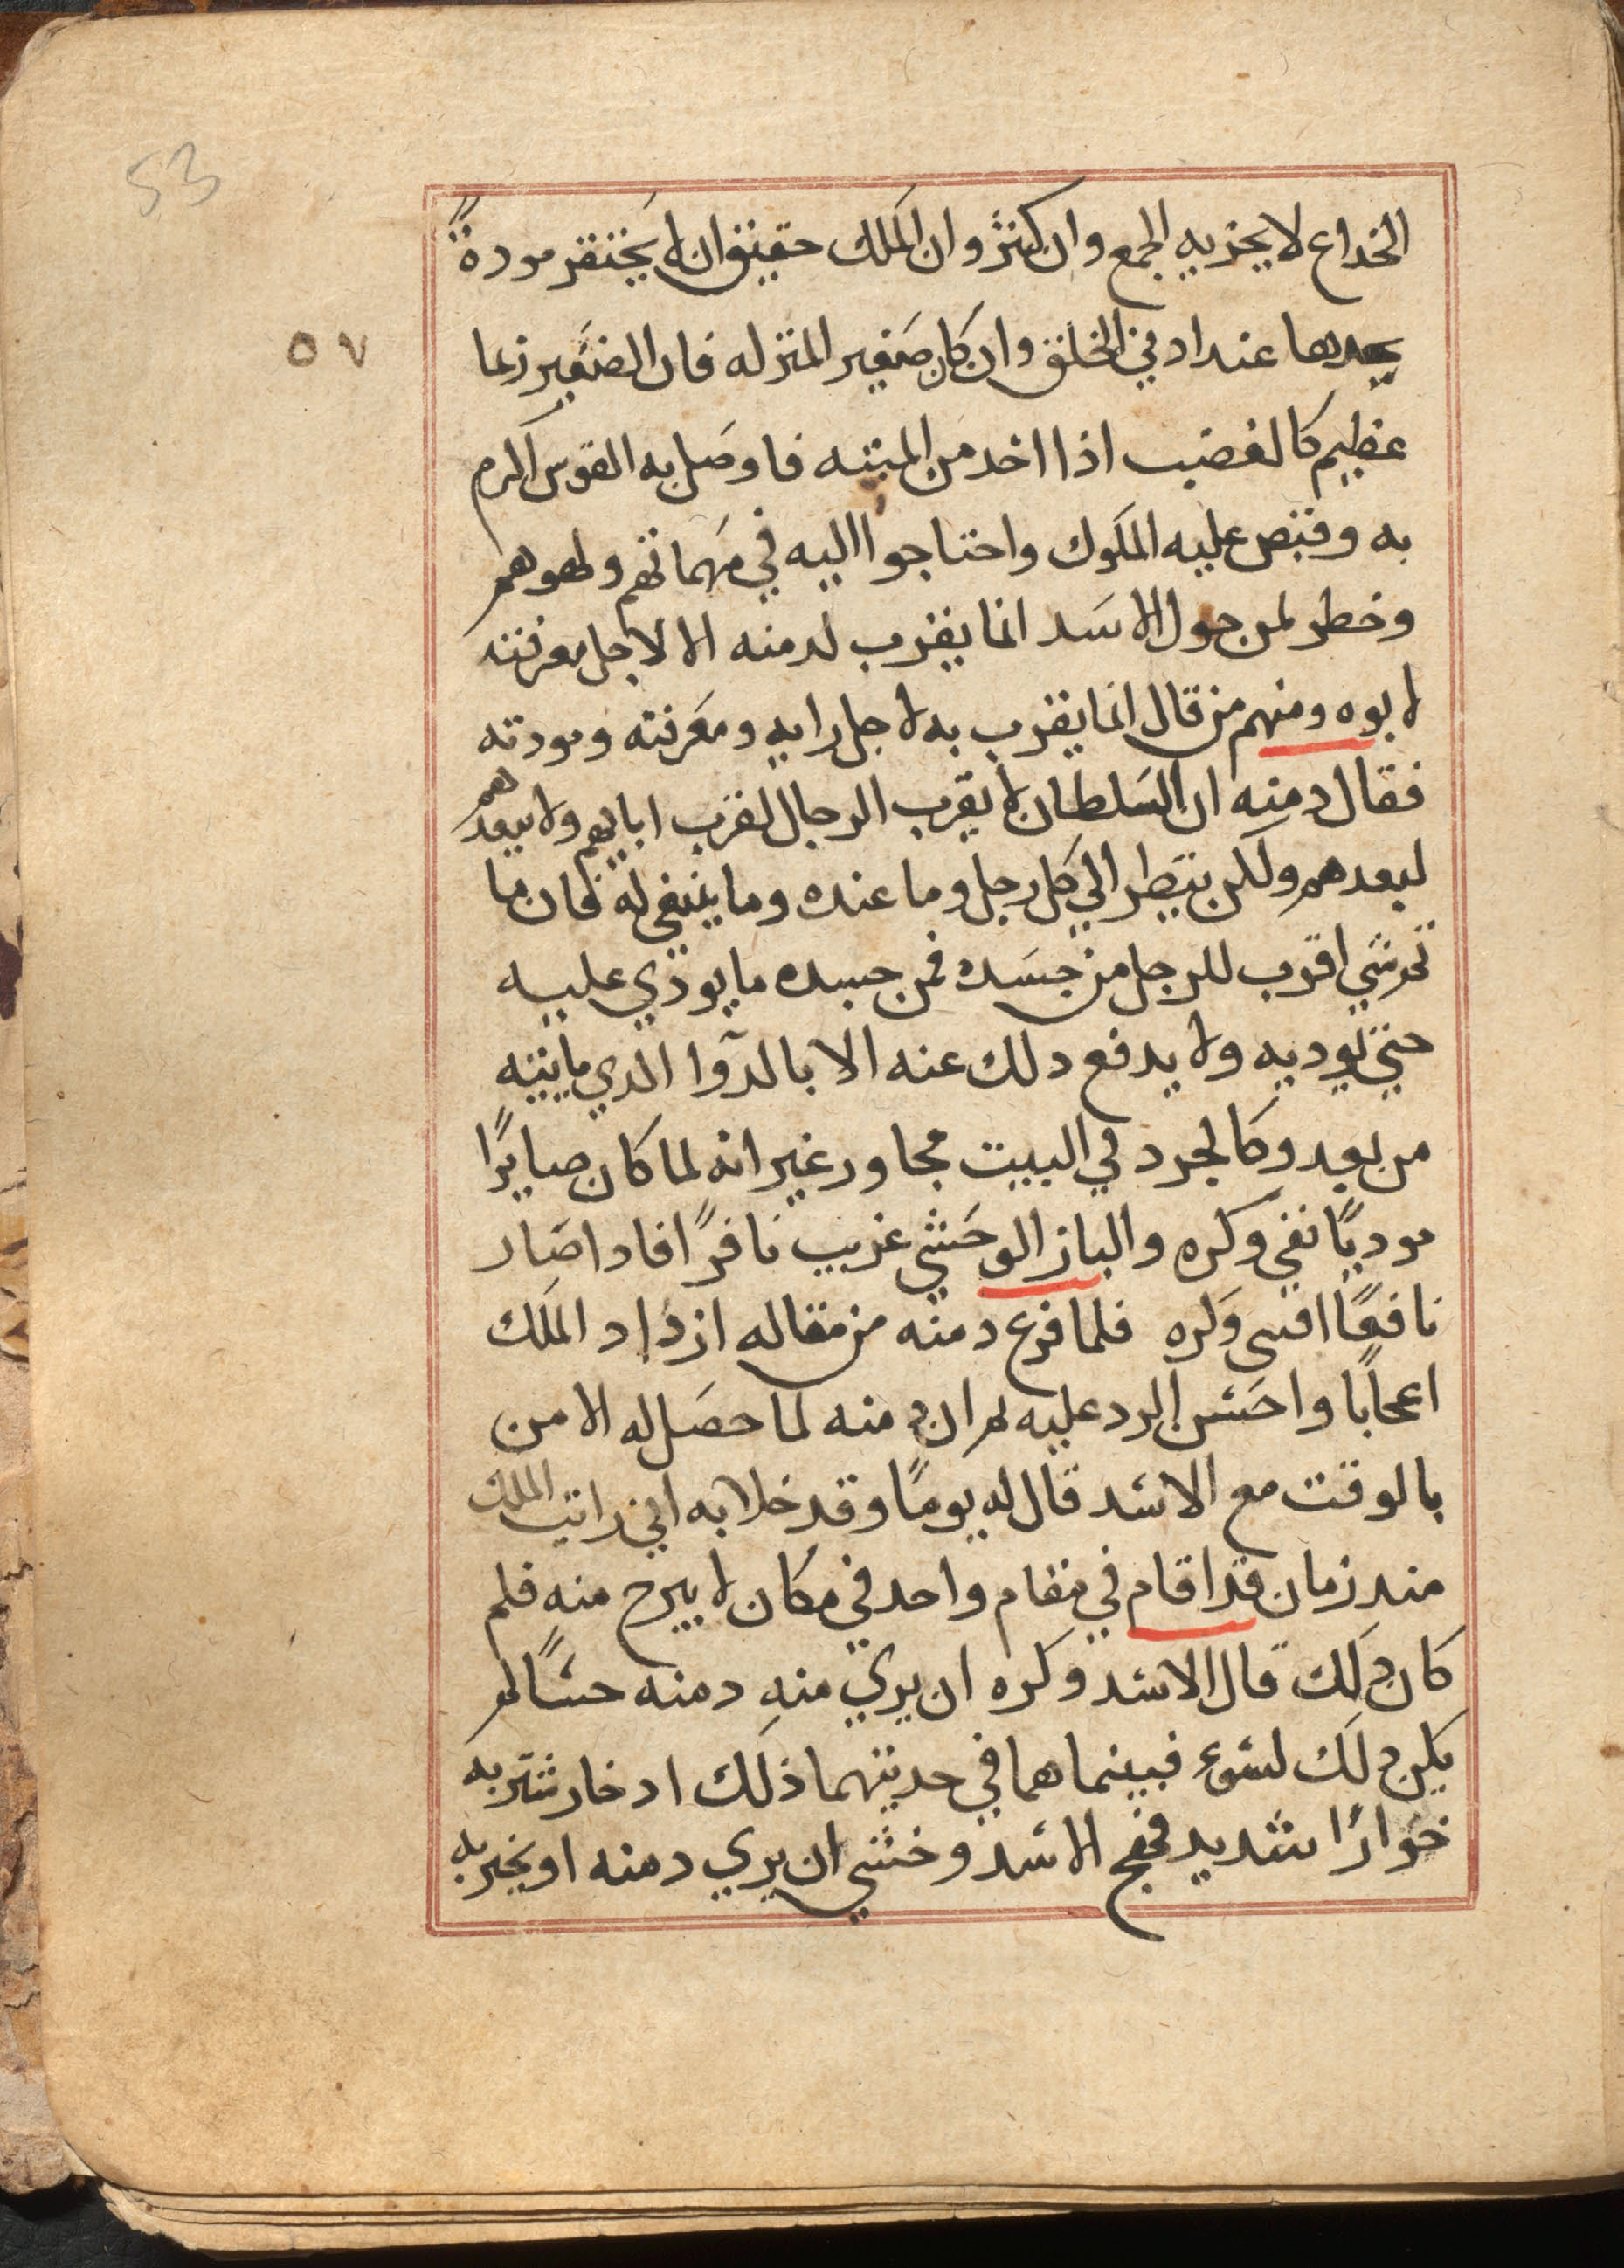 53
٥٧
الخداع لا يجزيه الجمع وان كثر وان الملك حقيق ان لا يحتقر مودةً
يجدها عند ادني الخلق وان كان صغير المنزله فان الصغير ربما
عظيم كالغضب اذا اخد من الميته فاوصل به القوس اكرم
به وقبص عليه الملوك واحتاجوا اليه في مهماتهم ولهوهم
وخطر لمن حول الاسد انما يقرب لدمنه الا لاجل معرفته
لابوه ومنهم من قال انما يقرب به لاجل رايه ومعرفته ومودته
فقال دمنه ان السلطان لا يقرب الرجال لقرب ابايهم ولا يبعدهم
لبعدهم ولكن ينظر الي كل رجل وما عنده وما ينبغي له فان ما
ثم شي اقرب للرجل من جسده فمن جسده ما يودي عليه
حتي يوديه ولا يدفع دلك عنه الا بالدوا الدي ماييته
من بعد وكالجرد في البيت مجاور غير انه لما كان صايرًا
موديًا نفي وكره والباز الوحشي غريب نافرًا فادا صار
نافعًا افسي وكره فلما فرع دمنه من مقاله ازداد الملك
اعجابًا واحسن الرد عليه ثم ان دمنه لما حصل له الامن
بالوقت مع الاسد قال له يومًا وقد خلا به اني رايت الملك
مند زمان قد اقام في مقام واحد في مكان لا يبرح منه فلم
كان دلك قال الاسد وكره ان يري منه دمنه حسًا لم
يكن دلك لسوء فبينما هما في حديتهما ذلك اد خار شتربه
خوارًا شديد فهج الاسد وخشي ان يري دمنه او يخبر به